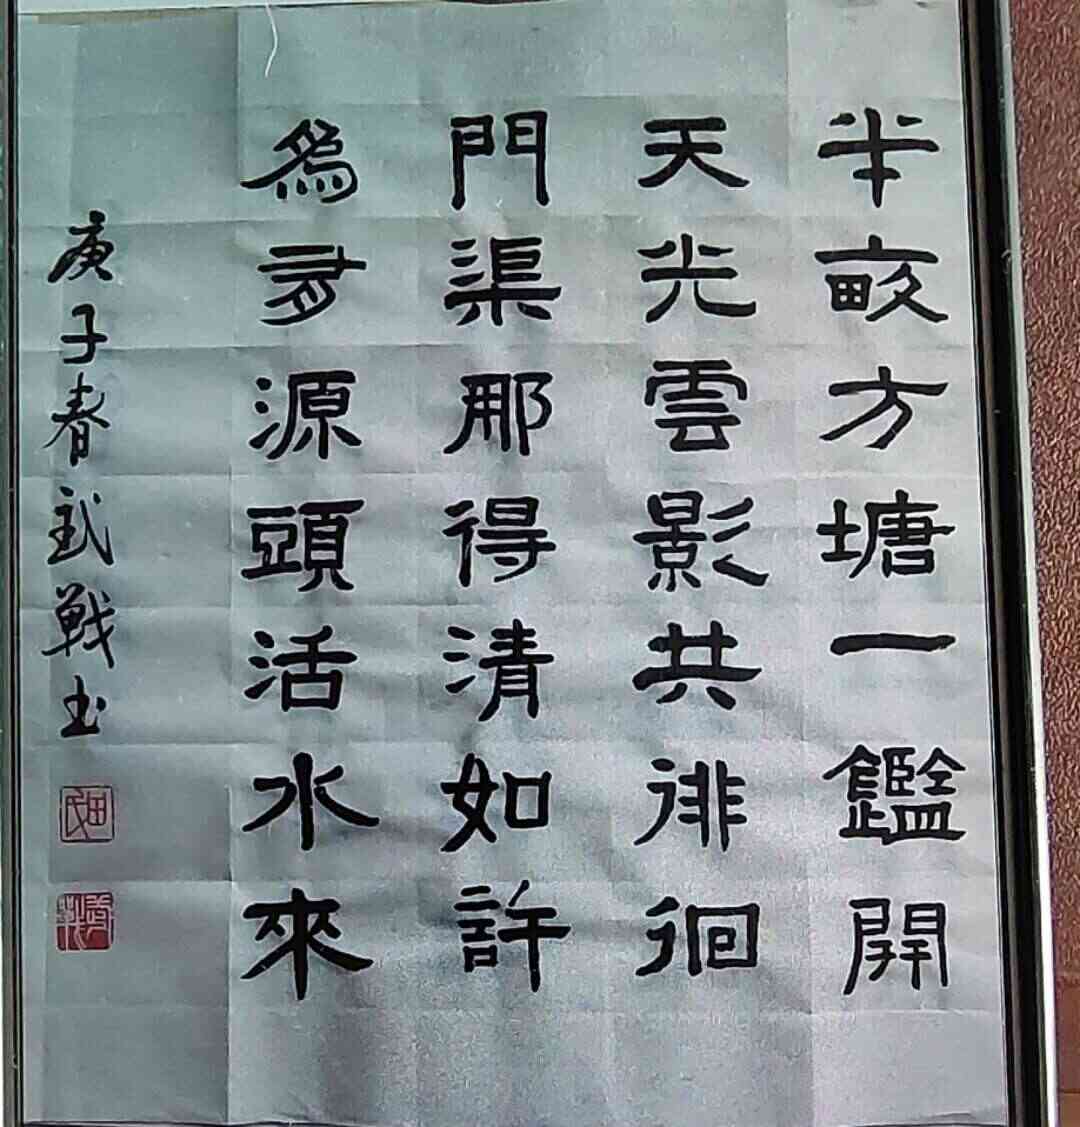 半畝方塘一鑑開
天光雲影共徘徊
門渠那得清如許
爲有源頭活水來
庚子春武戰书